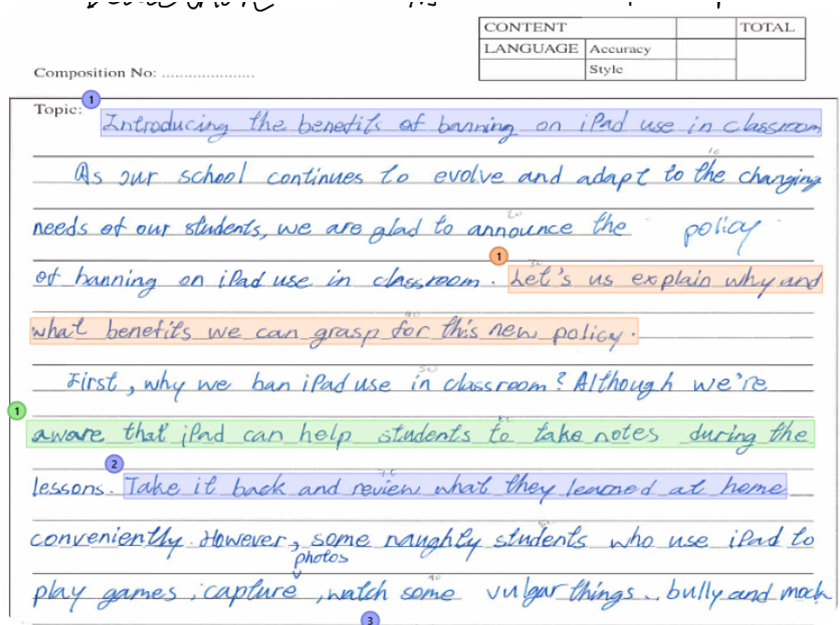 CONTENT TOTAL
LANGUAGE Accuracy
Style
Composition No: ......................
Topic: 1
Introducing the benefits of banning on iPad use in classroom
10
As our school continues to evolve and adapt to the changing
20
needs of our students, we are glad to announce the policy
1
of banning on iPad use in classroom. Let's us explain why and
40
what benefits we can grasp for this new policy.
50
First, why we ban iPad use in classroom? Although we're
1
aware that iPad can help students to take notes during the
2
lessons. Take it back and review what they learned at home
conveniently. However, some naughty students who use iPad to
photos
play games, capture, watch some vulgar things.. bully and mock
3